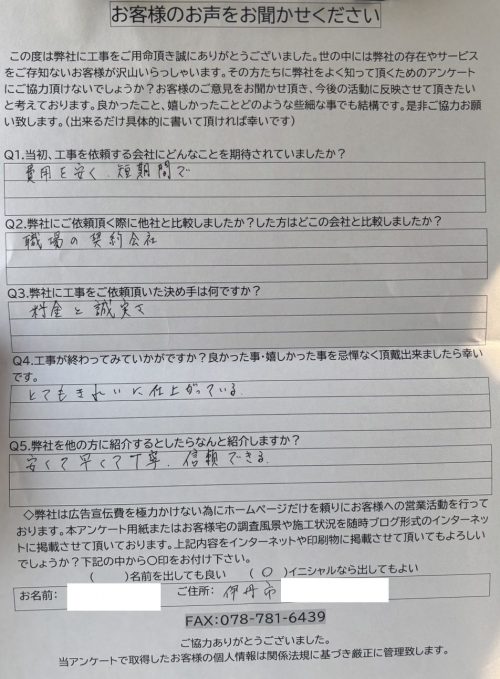 お客様のお声をお聞かせください
この度は弊社に工事をご用命頂き誠にありがとうございました。世の中には弊社の存在やサービス
をご存知ないお客様が沢山いらっしゃいます。その方たちに弊社をよく知って頂くためのアンケート
にご協力頂けないでしょうか?お客様のご意見をお聞かせ頂き、今後の活動に反映させて頂きたい
と考えております。良かったこと、嬉しかったことどのような些細な事でも結構です。是非ご協力お願
い致します。(出来るだけ具体的に書いて頂ければ幸いです)
Q1.当初、工事を依頼する会社にどんなことを期待されていましたか?
費用を安く、短期間で
Q2.弊社にご依頼頂く際に他社と比較しましたか?した方はどこの会社と比較しましたか?
職場の契約会社
Q3.弊社に工事をご依頼頂いた決め手は何ですか?
料金と誠実さ
Q4.工事が終わってみていかがですか?良かった事・嬉しかった事を忌憚なく頂戴出来ましたら幸い
です。
とてもきれいに仕上がっている。
Q5.弊社を他の方に紹介するとしたらなんと紹介しますか?
安くて早くて丁寧、信頼できる。
◇弊社は広告宣伝費を極力かけない為にホームページだけを頼りにお客様への営業活動を行って
おります。本アンケート用紙またはお客様宅の調査風景や施工状況を随時ブログ形式のインターネッ
トに掲載させて頂いております。上記内容をインターネットや印刷物に掲載させて頂いてもよろしい
でしょうか?下記の中から〇印をお付け下さい。
( )名前を出しても良い (○)イニシャルなら出してもよい
お名前: ご住所: 伊丹市
FAX:078-781-6439
ご協力ありがとうございました。
当アンケートで取得したお客様の個人情報は関係法規に基づき厳正に管理致します。